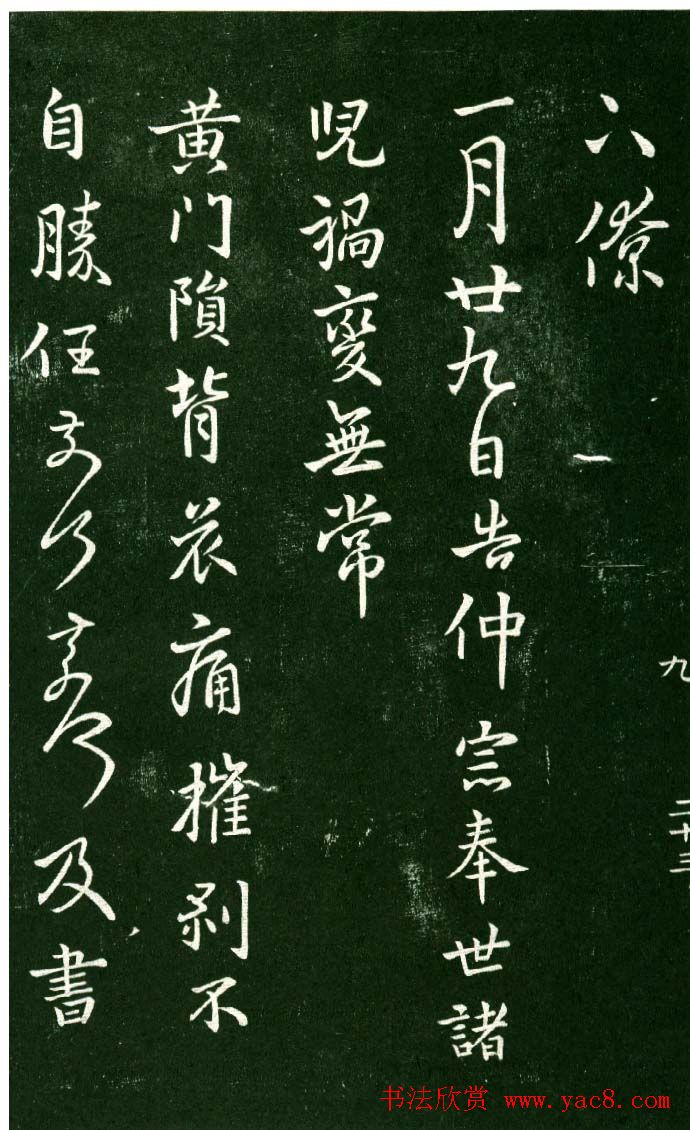 九 二十三
六僚
一月廿九日告仲宗奉世諸
兒禍變無常
黄门隕背哀痛摧剥不
自勝任奈何奈何及書
书法欣赏 www.yac8.com